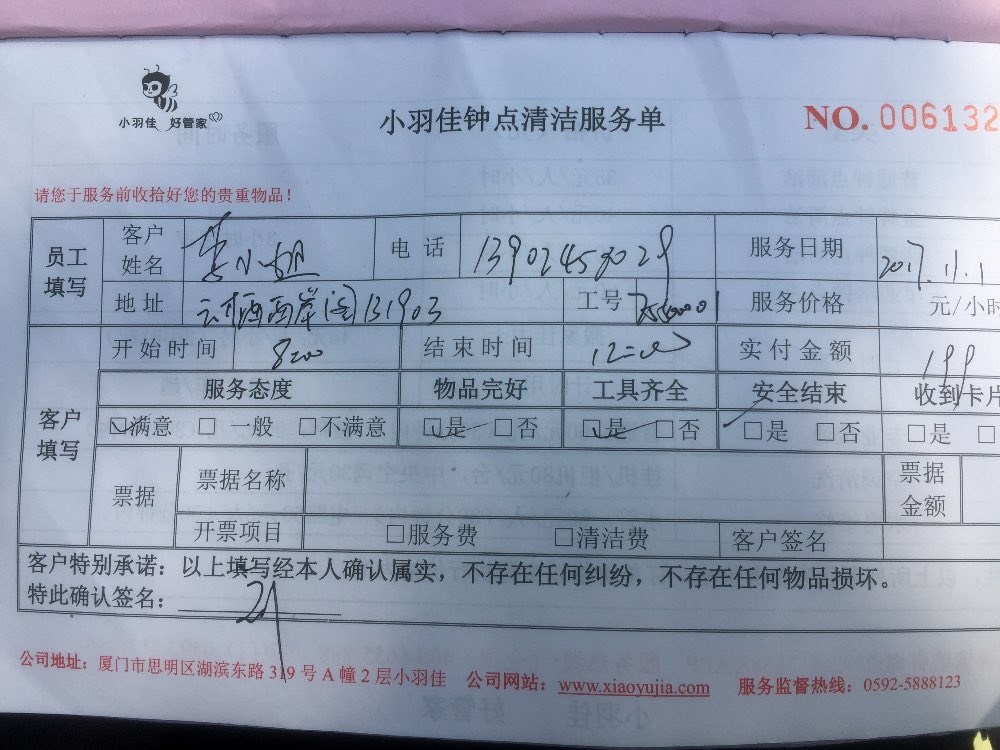 小羽佳 好管家
小羽佳钟点清洁服务单
NO. 006132
请您于服务前收拾好您的贵重物品！
员工填写 客户姓名 小姐 电话 服务日期 2017.11.1
地址 131903 工号 服务价格 元/小时
客户填写 开始时间 800 结束时间 12=00 实付金额 199
服务态度 物品完好 工具齐全 安全结束 收到卡片
☑满意 □ 一般 □不满意 ☑是 □否 ☑是 □否 □是 □否 □是 □
票据 票据名称 票据金额
开票项目 □服务费 □清洁费 客户签名
客户特别承诺：以上填写经本人确认属实，不存在任何纠纷，不存在任何物品损坏。
特此确认签名：
公司地址：厦门市思明区湖滨东路 319 号 A 幢 2 层小羽佳 公司网站：www.xiaoyujia.com 服务监督热线：0592-5888123